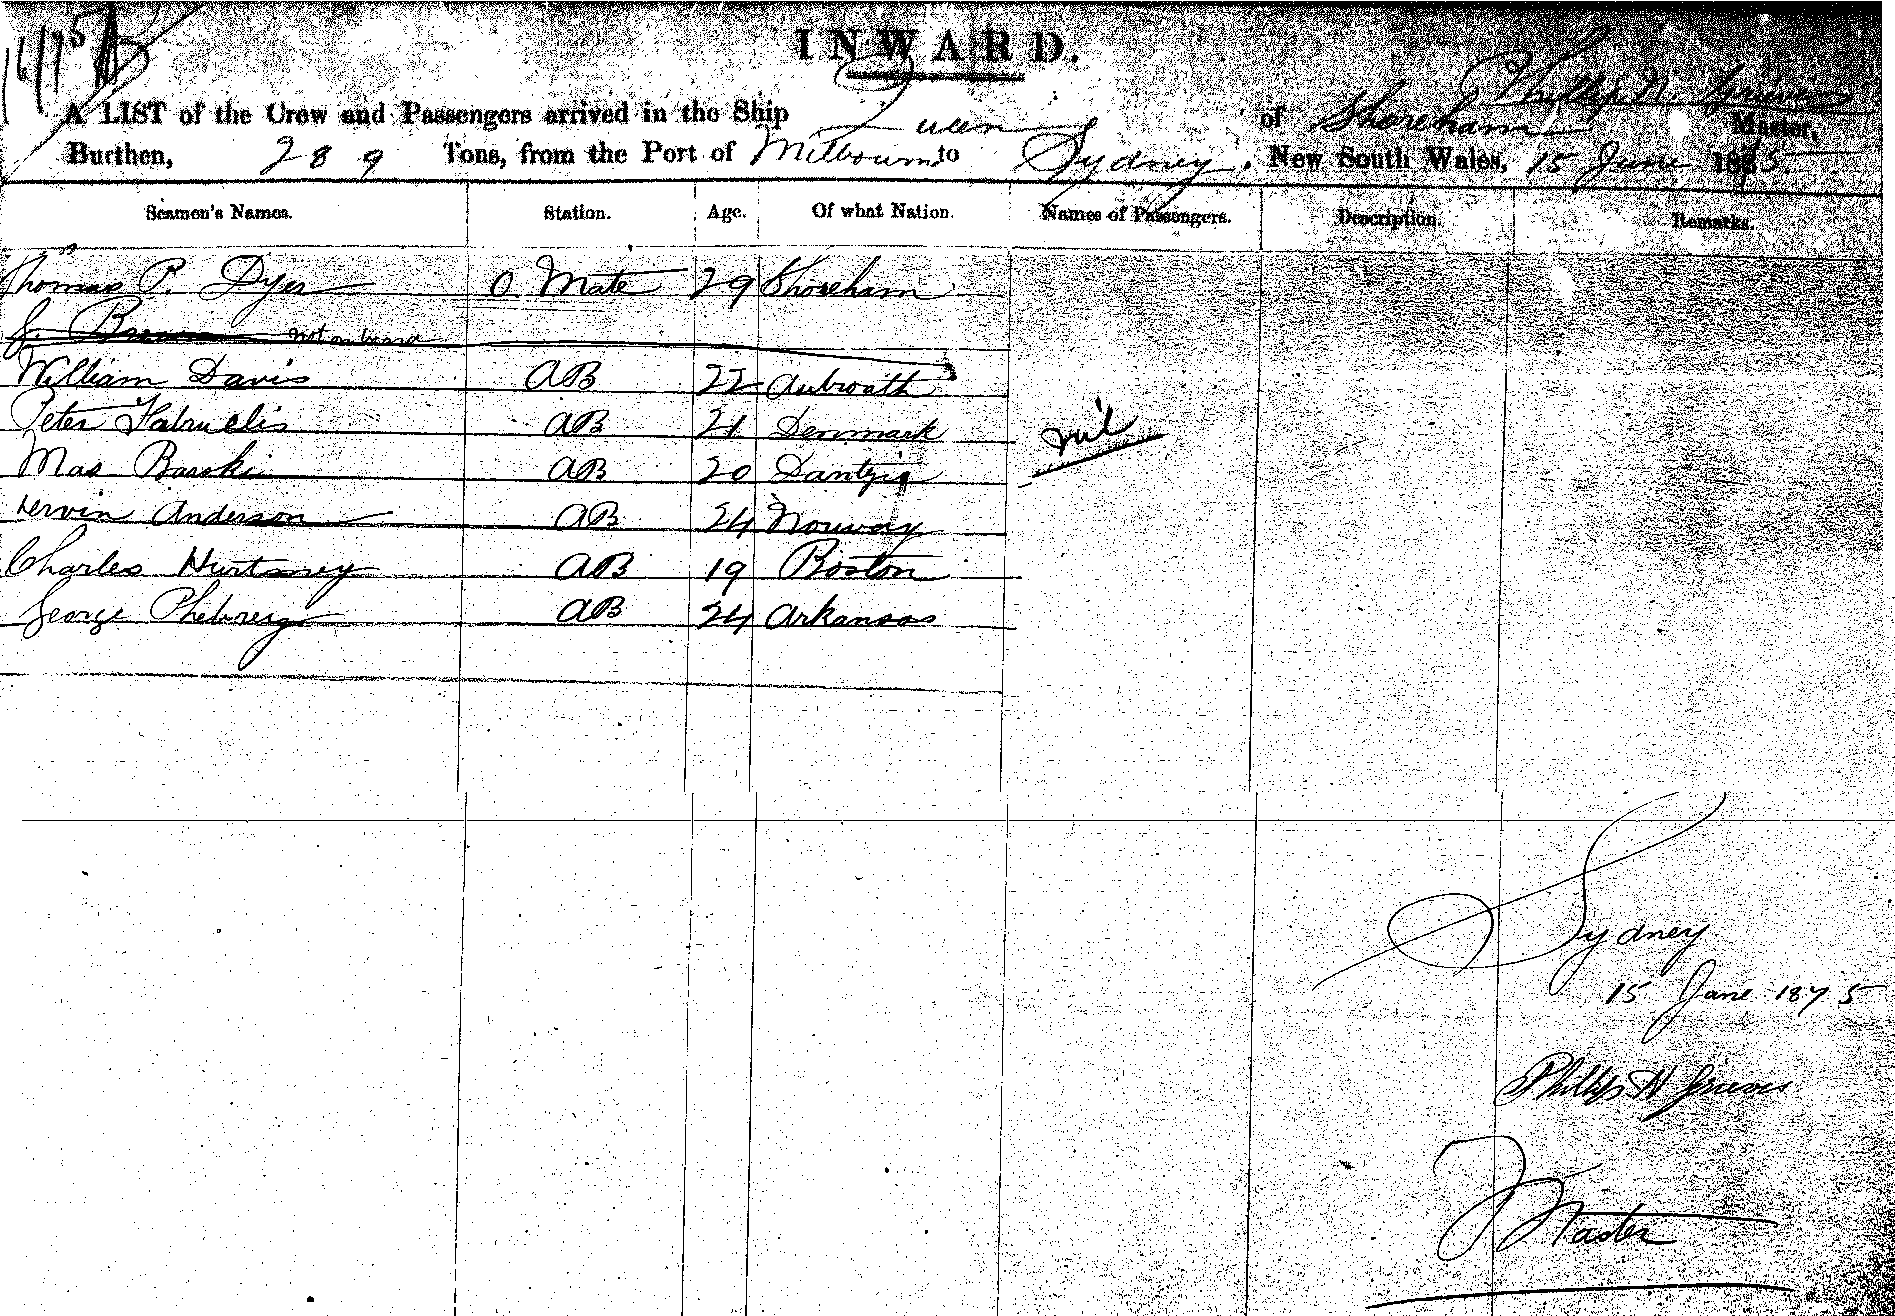 16/75
INWARD.
Phillip N. Grieves
A LIST of the Crew and Passengers arrived in the Ship Queen of Shoreham Master,
Burthen, 289 Tons, from the Port of Melbourn to Sydney, New South Wales, 15 June 1875.
Seamen's Names. Station. Age. Of what Nation. Names of Passengers. Description. Remarks.
Thomas P. Dyer O. Mate 29 Shoreham
J. Brown not on board
William Davis AB 22 Aubroath
Peter AB 21 Denmark nil
Mas Baroki AB 20 Dantzig
Anderson AB 24 Norway
Charles Hurtsney AB 19 Boston
George AB 24 Arkansas
Sydney
15 June 1875
Phillip N Grieves
Master